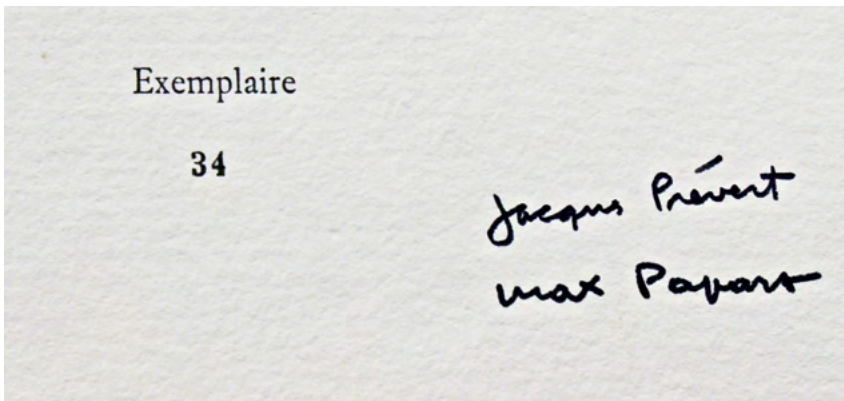 Exemplaire
34
Jacques Prévert
Max Papart